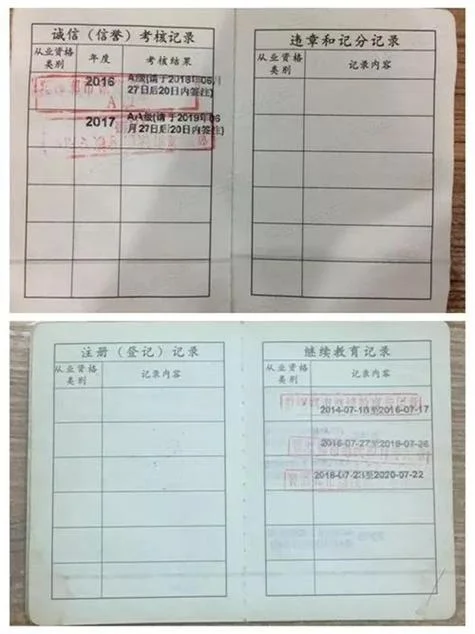 诚信（信誉）考核记录
从业资格
类别
年度
考核结果
2016
A级(请于2018年06月
27日后20日内签注)
2017
AA级(请于2019年06
月27日后20日内签注)
违章和记分记录
从业资格
类别
记录内容
注册（登记）记录
从业资格
类别
记录内容
继续教育记录
从业资格
类别
记录内容
2014-07-18至2016-07-17
2016-07-27至2018-07-26
2018-07-23至2020-07-22